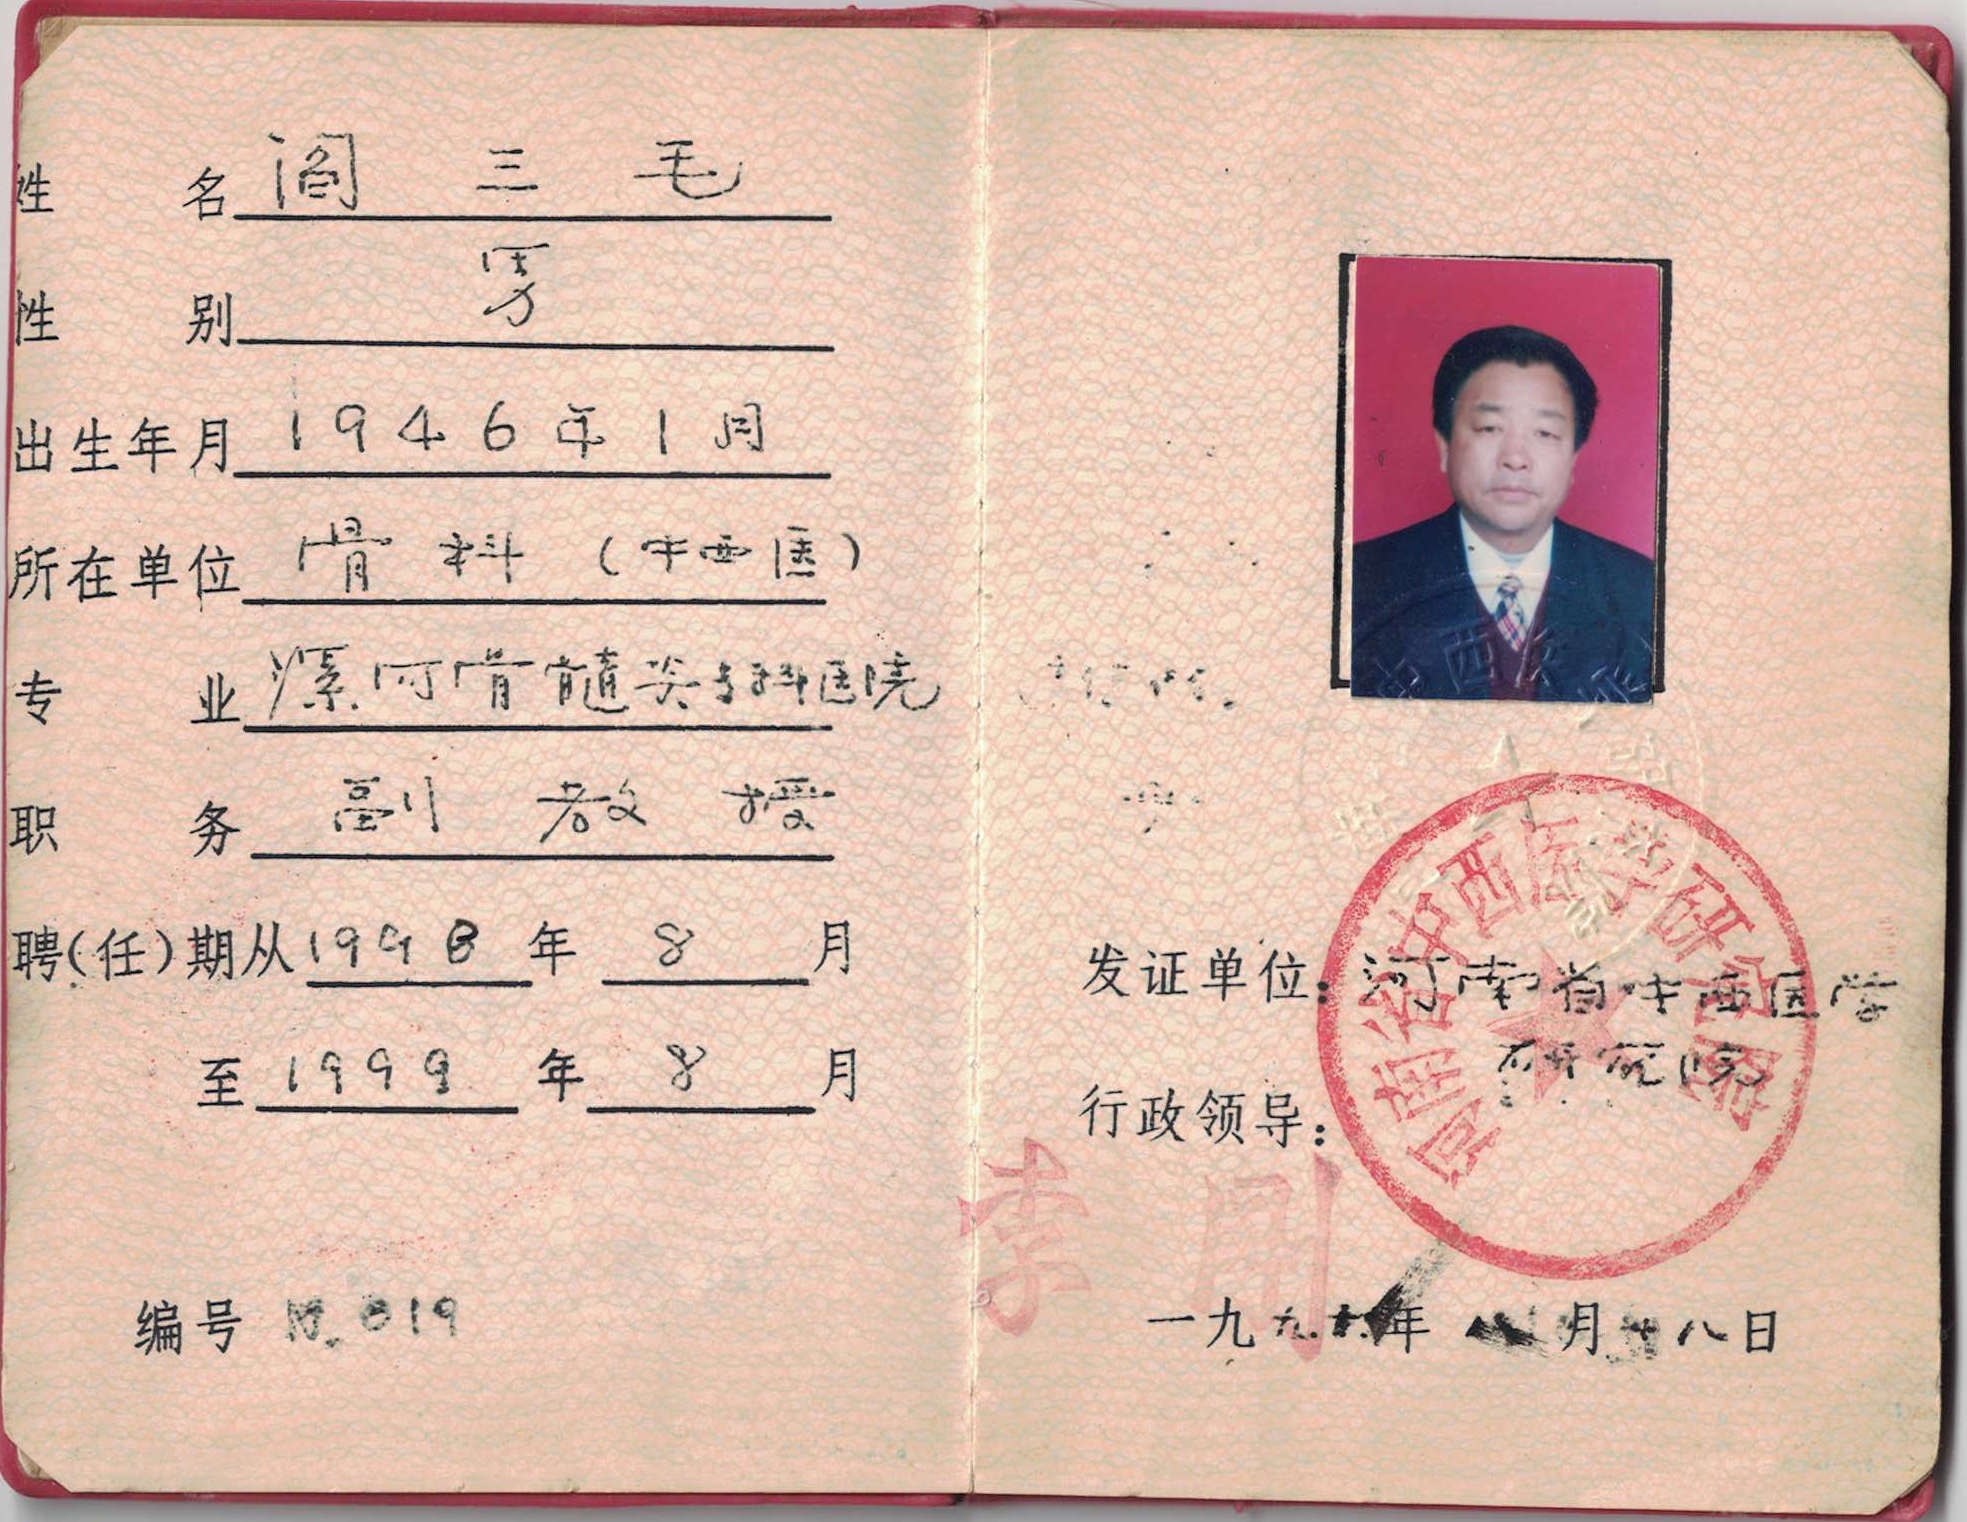 姓名 阎三毛
性别 男
出生年月 1946年1月
所在单位 骨科(中西医)
专业 漯河骨髓炎专科医院
职务 副教授
聘(任)期从 1998年8月
至 1999年8月
编号 019
中西医
河南省中西医学研究院
发证单位：河南省中西医学
研究院
行政领导：
李刚
一九九 年 月 八日